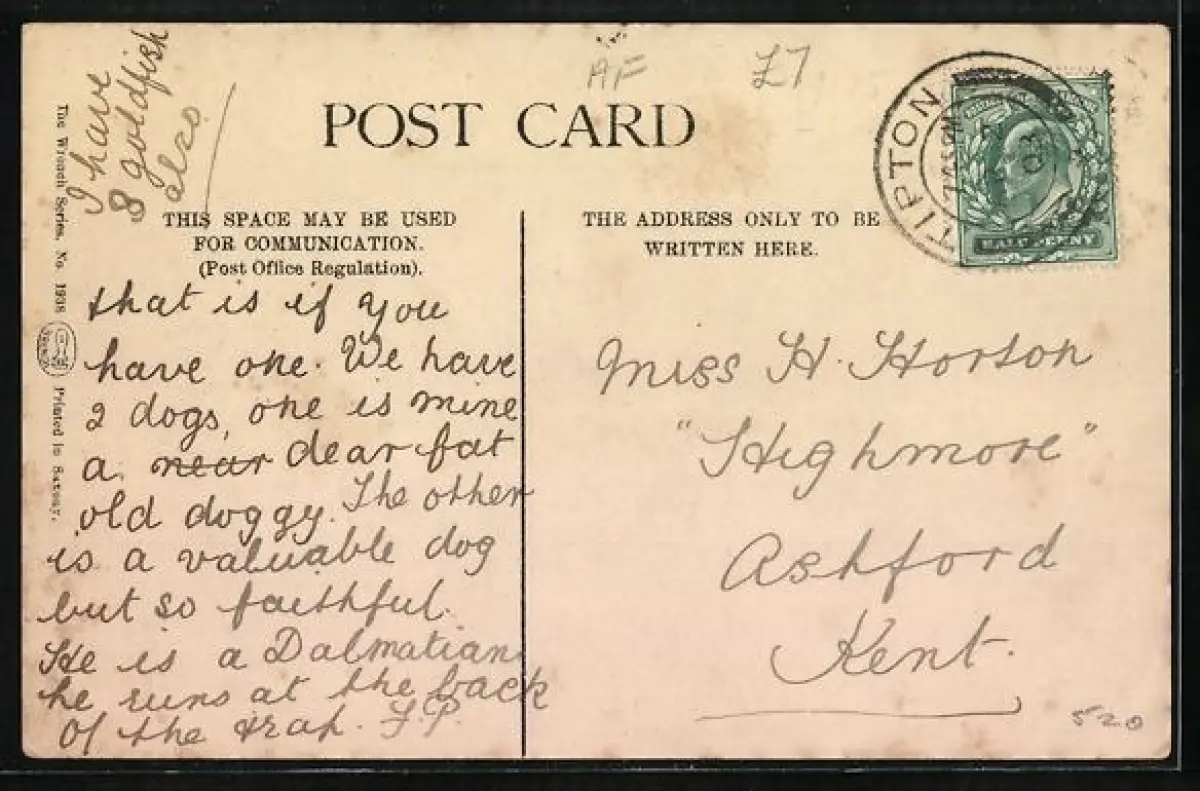 I have
8 goldfish
also.
AF
£7
POST CARD
TIPTON
HALFPENNY
THIS SPACE MAY BE USED
FOR COMMUNICATION.
(Post Office Regulation).
THE ADDRESS ONLY TO BE
WRITTEN HERE.
The Wrench Series, No. 1938
Printed in Saxony.
that is if you
have one. We have
2 dogs, one is mine
a near dear fat
old doggy. The other
is a valuable dog
but so faithful.
He is a Dalmatian
he runs at the back
of the trap. F.P.
Miss H. Horton
"Highmore"
Ashford
Kent.
520